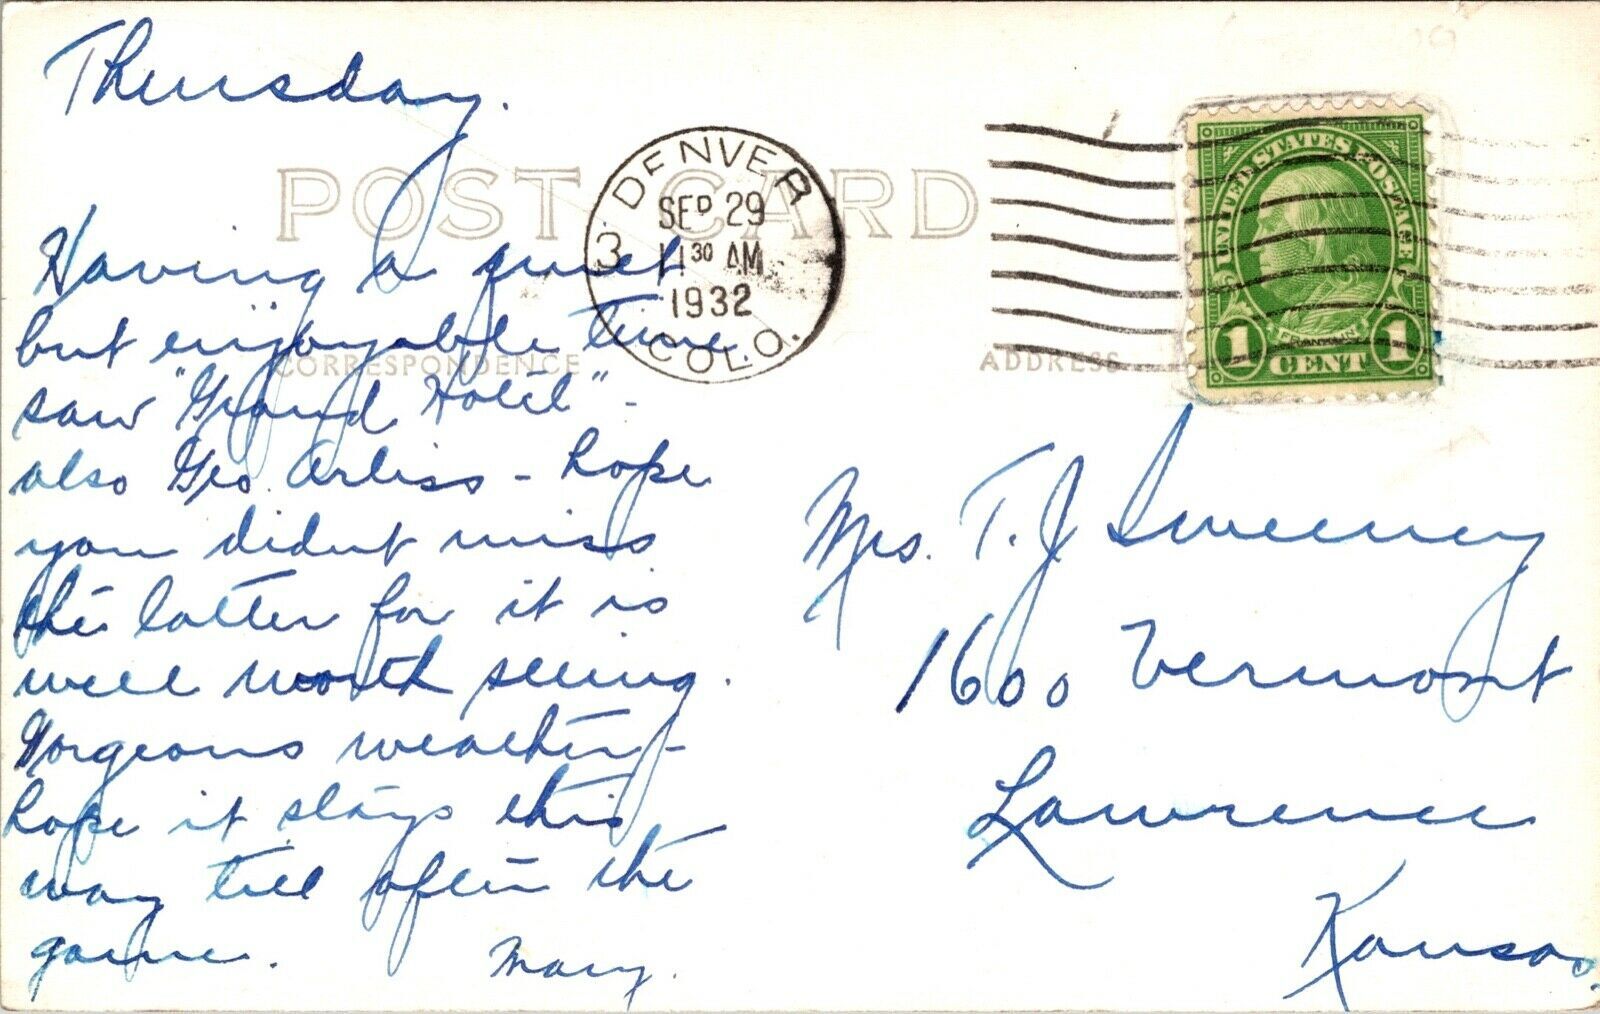 Thursday.
POST CARD
DENVER
SEP 29
3 11 30 AM
1932
COLO.
UNITED STATES POSTAGE
FRANKLIN
1 CENT 1
CORRESPONDENCE
ADDRESS
Having a quiet
but enjoyable time
saw "Grand Hotel" -
also Geo. Arliss - hope
you didn't miss
the latter for it is
well worth seeing.
Gorgeous weather -
hope it stays this
way till after the
game. Mary.
Mrs. T. J. Sweeney
1600 Vermont
Lawrence
Kansas.